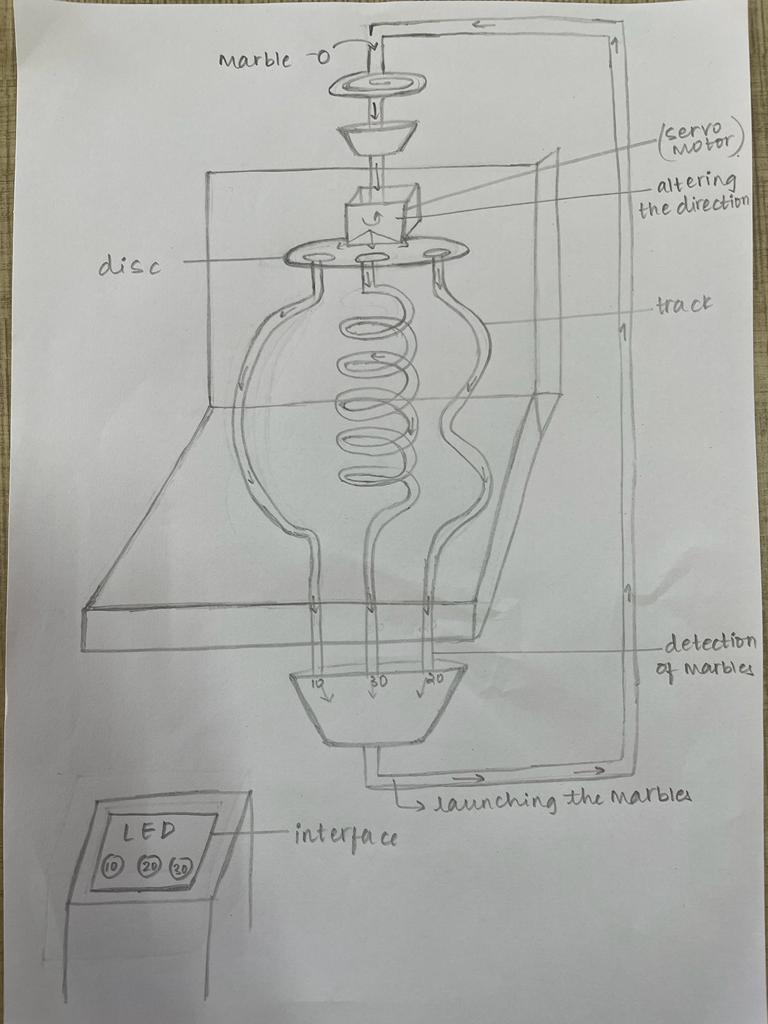 Marble
(servo
motor)
altering
the direction
disc
track
detection
of marbles
10 30 20
launching the marbles
LED
interface
10 20 30